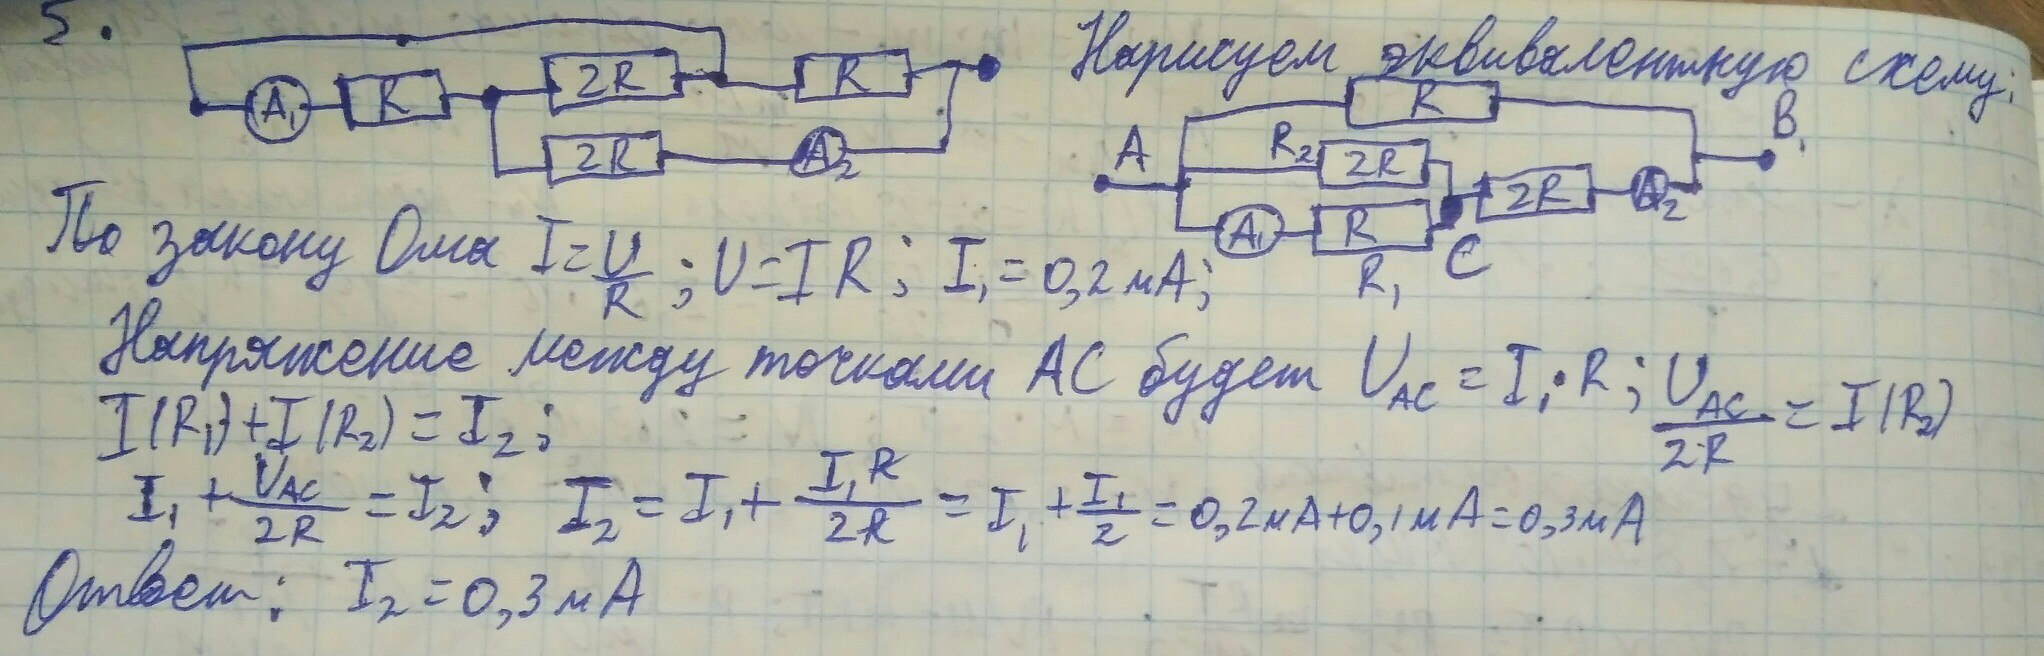 5.
A₁ R 2R R
2R A₂
Нарисуем эквивалентную схему:
R
A R₂ 2R 2R A₂ B
A₁ R
R₁ C
По закону Ома I=U/R; U=IR; I₁=0,2мА;
Напряжение между точками AC будет U_AC = I₁·R; U_AC/2·R = I(R₂)
I(R₁)+I(R₂)=I₂;
I₁+U_AC/2R=I₂; I₂=I₁+I₁R/2R=I₁+I₁/2=0,2мА+0,1мА=0,3мА
Ответ: I₂=0,3мА